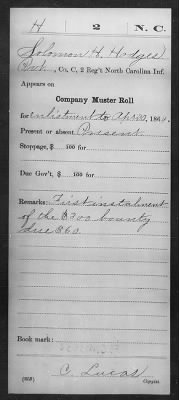 H 2 N.C.
Solomon H. Hodges
Pvt., Co. C, 2 Reg't North Carolina Inf.
Appears on
Company Muster Roll
for enlistment to Apr 30, 1864.
Present or absent Present
Stoppage, $ 100 for
Due Gov't, $ 100 for
Remarks: First instalment
of the $300 bounty
due $60.
Book mark:
(868) C. Lucas
Copyist.